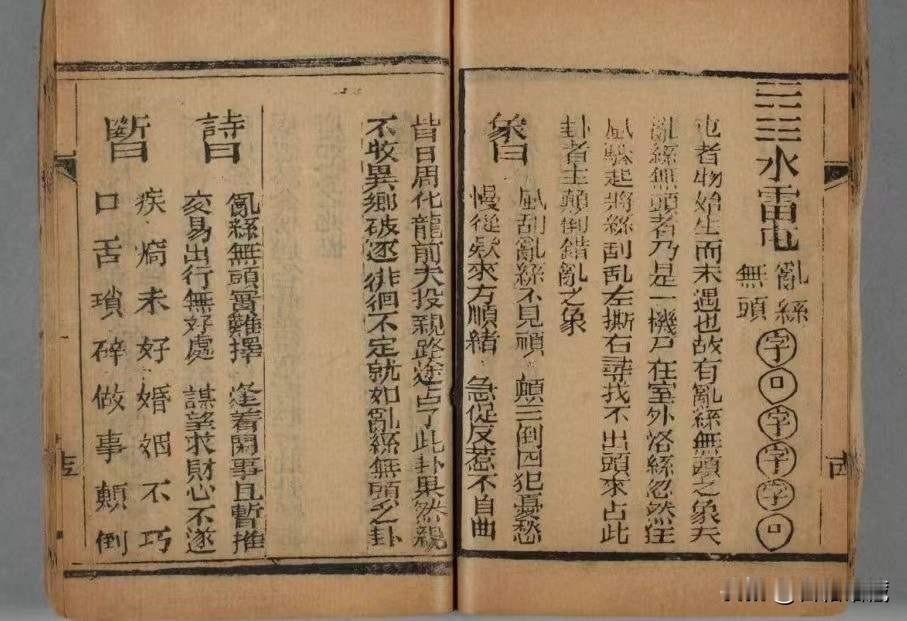 水雷屯
亂絲
無頭
字口字字字口
屯者物始生而未遇也故有亂絲無頭之象夫
亂絲無頭者乃是一機戶在室外烙絲忽然狂
風驟起將絲刮乱左撕右尋找不出頭來占此
卦者主顛倒錯亂之象
象曰
風刮亂絲不見頭 顛三倒四犯憂愁
慢從款來方順緒 急促反惹不自曲
昔日周化龍前去投親路途占了此卦果然親
不收異鄉破逐徘徊不定就如亂絲無頭之卦
詩曰
亂絲無頭實難擇 逢着閑事且暫推
交易出行無好處 謀望求財心不遂
斷曰
疾病未好婚姻不巧
口舌瑣碎做事顛倒